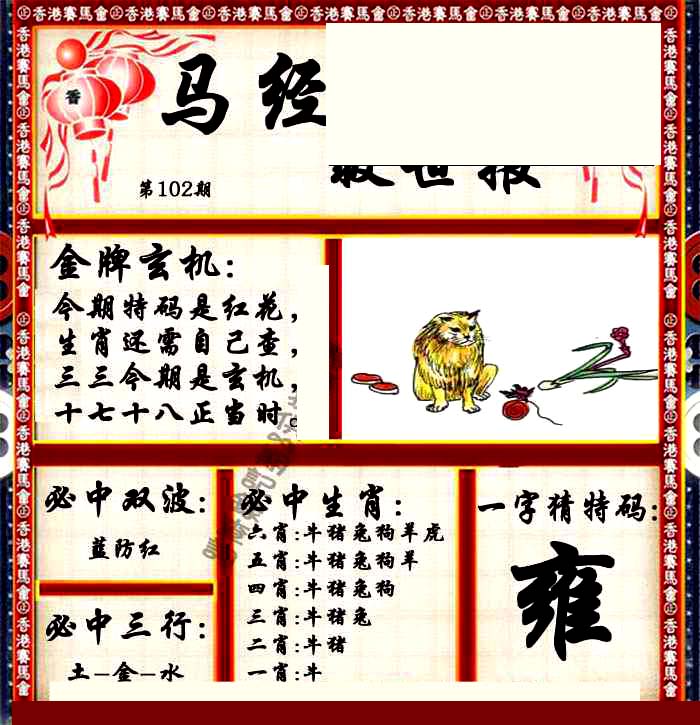 ㊣香港賽馬會㊣香港賽馬會㊣香港賽馬會㊣香港賽馬會㊣香港賽馬會㊣香港賽馬會㊣
香
马经
救世报
第102期
金牌玄机:
今期特码是红花,
生肖还需自己查,
三三今期是玄机,
十七十八正当时。
必中双波:
蓝防红
必中三行:
土-金-水
必中生肖:
六肖:牛猪兔狗羊虎
五肖:牛猪兔狗羊
四肖:牛猪兔狗
三肖:牛猪兔
二肖:牛猪
一肖:牛
一字猜特码:
雍